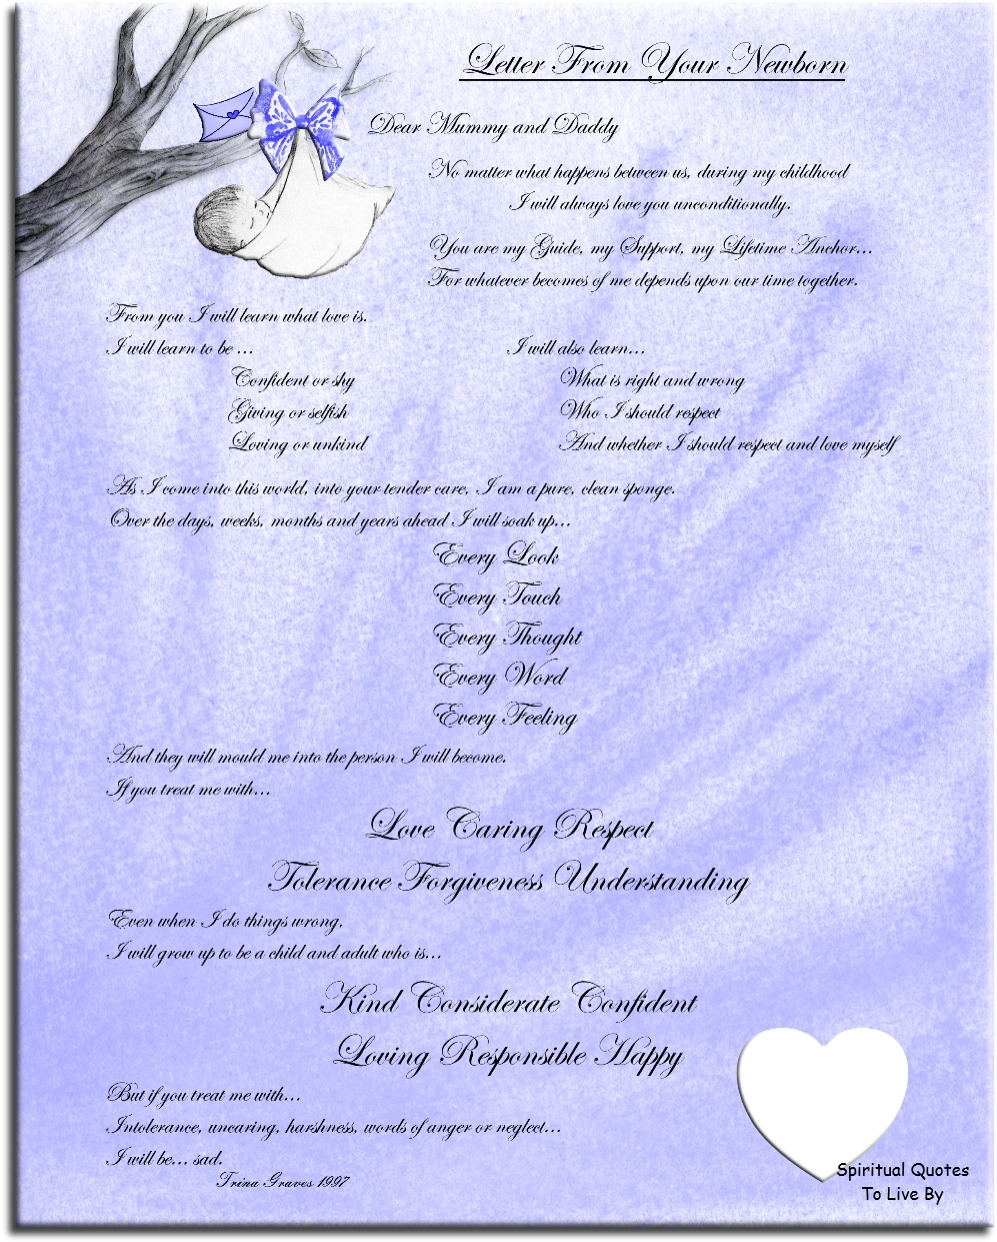 Letter From Your Newborn
Dear Mummy and Daddy
No matter what happens between us, during my childhood
I will always love you unconditionally.
You are my Guide, my Support, my Lifetime Anchor...
For whatever becomes of me depends upon our time together.
From you I will learn what love is.
I will learn to be ...
Confident or shy
Giving or selfish
Loving or unkind
I will also learn...
What is right and wrong
Who I should respect
And whether I should respect and love myself
As I come into this world, into your tender care, I am a pure, clean sponge.
Over the days, weeks, months and years ahead I will soak up...
Every Look
Every Touch
Every Thought
Every Word
Every Feeling
And they will mould me into the person I will become.
If you treat me with...
Love Caring Respect
Tolerance Forgiveness Understanding
Even when I do things wrong,
I will grow up to be a child and adult who is...
Kind Considerate Confident
Loving Responsible Happy
But if you treat me with...
Intolerance, uncaring, harshness, words of anger or neglect...
I will be... sad.
Trina Graves 1997
Spiritual Quotes
To Live By